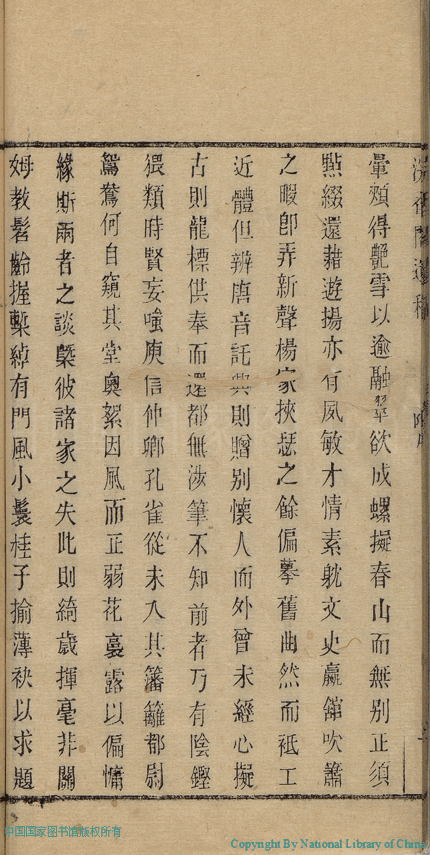 暈頰得艷雪以逾融翠欲成螺擬春山而無別正須
㸃綴還藉遊揚亦有夙敏才情素躭文史嬴䑓吹簫
之暇卽弄新聲楊家挾瑟之餘偏摹舊曲然而祇工
近體但辨唐音託興則贈别懷人而外曾未經心擬
古則龍標供奉而還都無涉筆不知前者乃有陰鏗
猥類時賢妄嗤庾信仲卿孔雀從未入其籓籬都尉
鴛鴦何自窺其堂奧絮因風而正弱花裛露以偏慵
緣斯兩者之談槩彼諸家之失此則綺歲揮毫非關
姆教髫齡握槧綽有門風小鬟桂子揄薄袂以求題
中国国家图书馆版权所有
Copyright By National Library of China